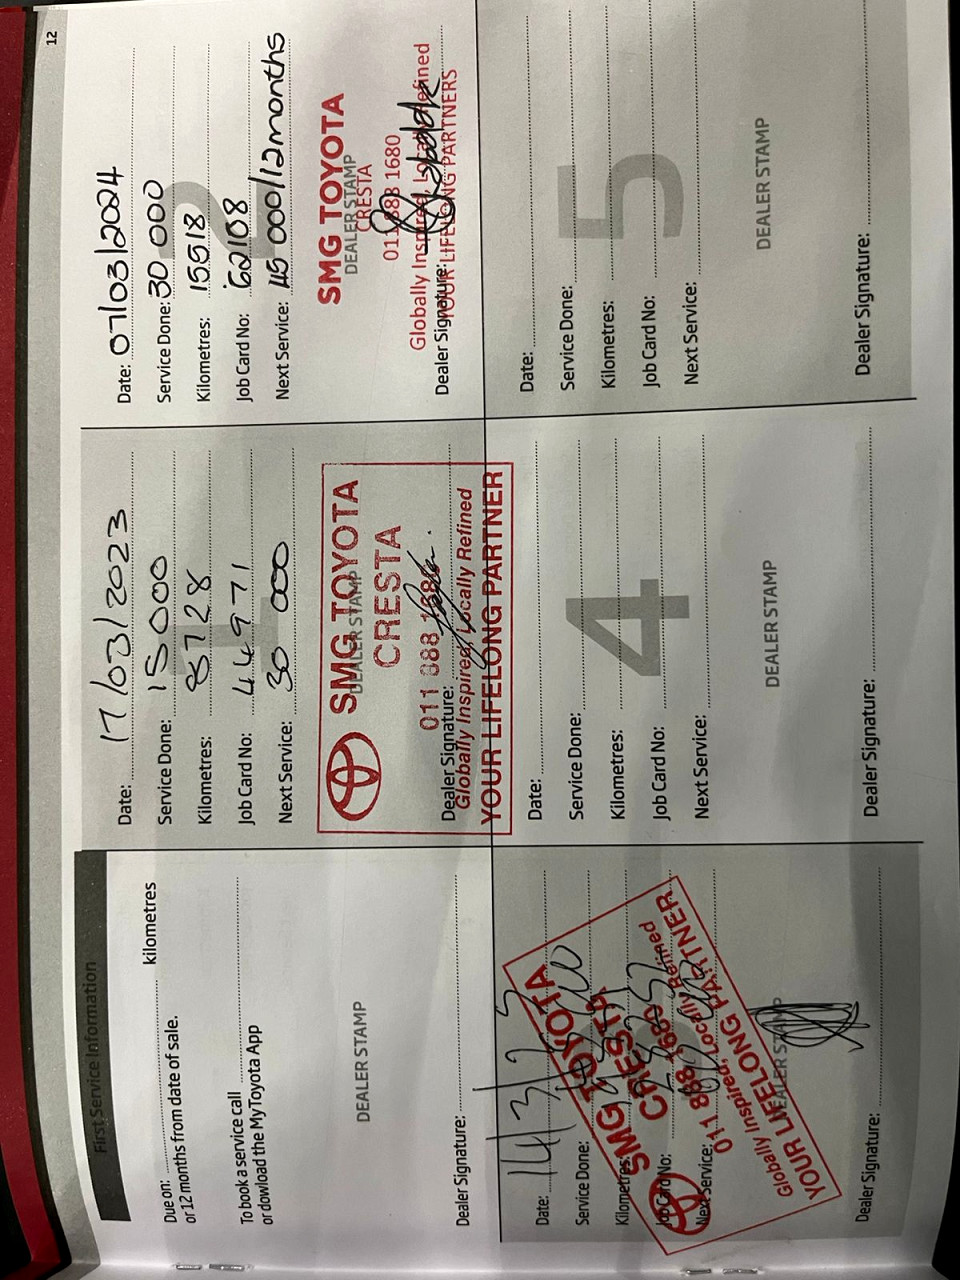 12
First Service Information
Due on: kilometres
or 12 months from date of sale.
To book a service call
or dowload the My Toyota App
DEALER STAMP
Dealer Signature:
1
Date: 17/03/2023
Service Done: 15000
Kilometres: 8728
Job Card No: 44971
Next Service: 30 000
DEALER STAMP
SMG TOYOTA
CRESTA
011 888
Dealer Signature:
Globally Inspired, Locally Refined
YOUR LIFELONG PARTNER
2
Date: 07/03/2024
Service Done: 30 000
Kilometres: 15518
Job Card No: 62108
Next Service: 45 000/12months
SMG TOYOTA
DEALER STAMP
CRESTA
011 888 1680
Globally Inspired, Locally Refined
Dealer Signature:
YOUR LIFELONG PARTNERS
Date: 14/3/25
Service Done:
Kilometres:
Job Card No:
Next Service:
SMG TOYOTA
CRESTA
011 888 1680
Globally Inspired, Locally Refined
YOUR LIFELONG PARTNER
DEALER STAMP
Dealer Signature:
4
Date:
Service Done:
Kilometres:
Job Card No:
Next Service:
DEALER STAMP
Dealer Signature:
5
Date:
Service Done:
Kilometres:
Job Card No:
Next Service:
DEALER STAMP
Dealer Signature: